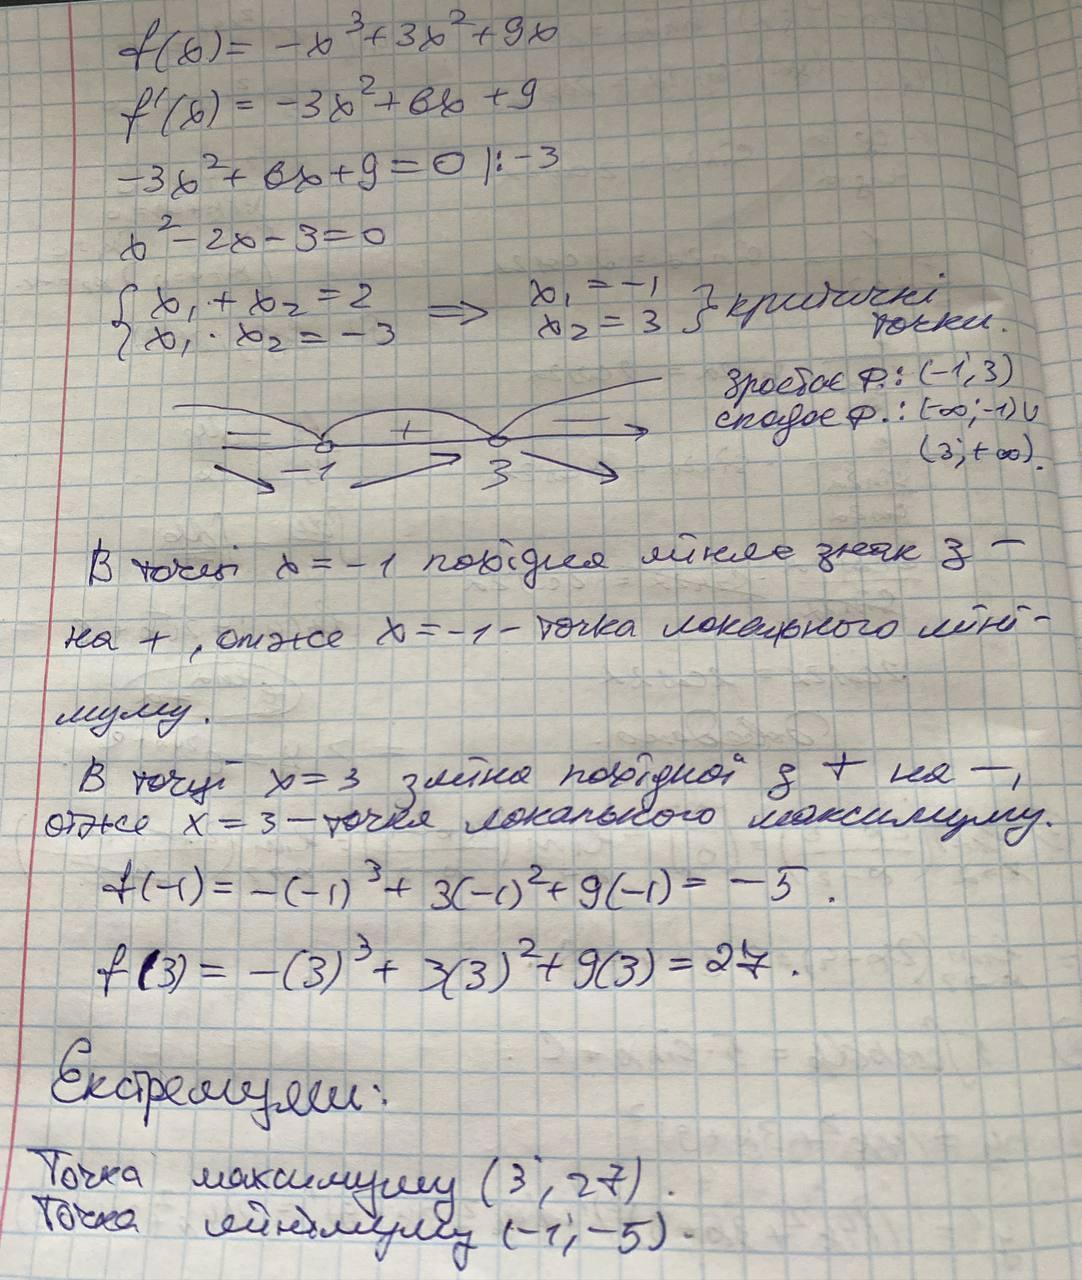 f(x) = -x³+3x²+9x
f'(x) = -3x²+6x+9
-3x²+6x+9=0 |:-3
x²-2x-3=0
{ x₁+x₂=2
x₁·x₂=-3 => x₁=-1
x₂=3 } критичні
точки.
зростає ф.: (-1;3)
спадає ф.: (-∞;-1)∪
(3;+∞).
- + -
-1 3
В точці x=-1 похідна міняє знак з -
на +, отже x=-1 - точка локального міні-
муму.
В точці x=3 зміна похідної з + на -,
отже x=3 - точка локального максимуму.
f(-1) = -(-1)³+3(-1)²+9(-1) = -5.
f(3) = -(3)³+3(3)²+9(3) = 27.
Екстремуми:
Точка максимуму (3;27).
Точка мінімуму (-1;-5).